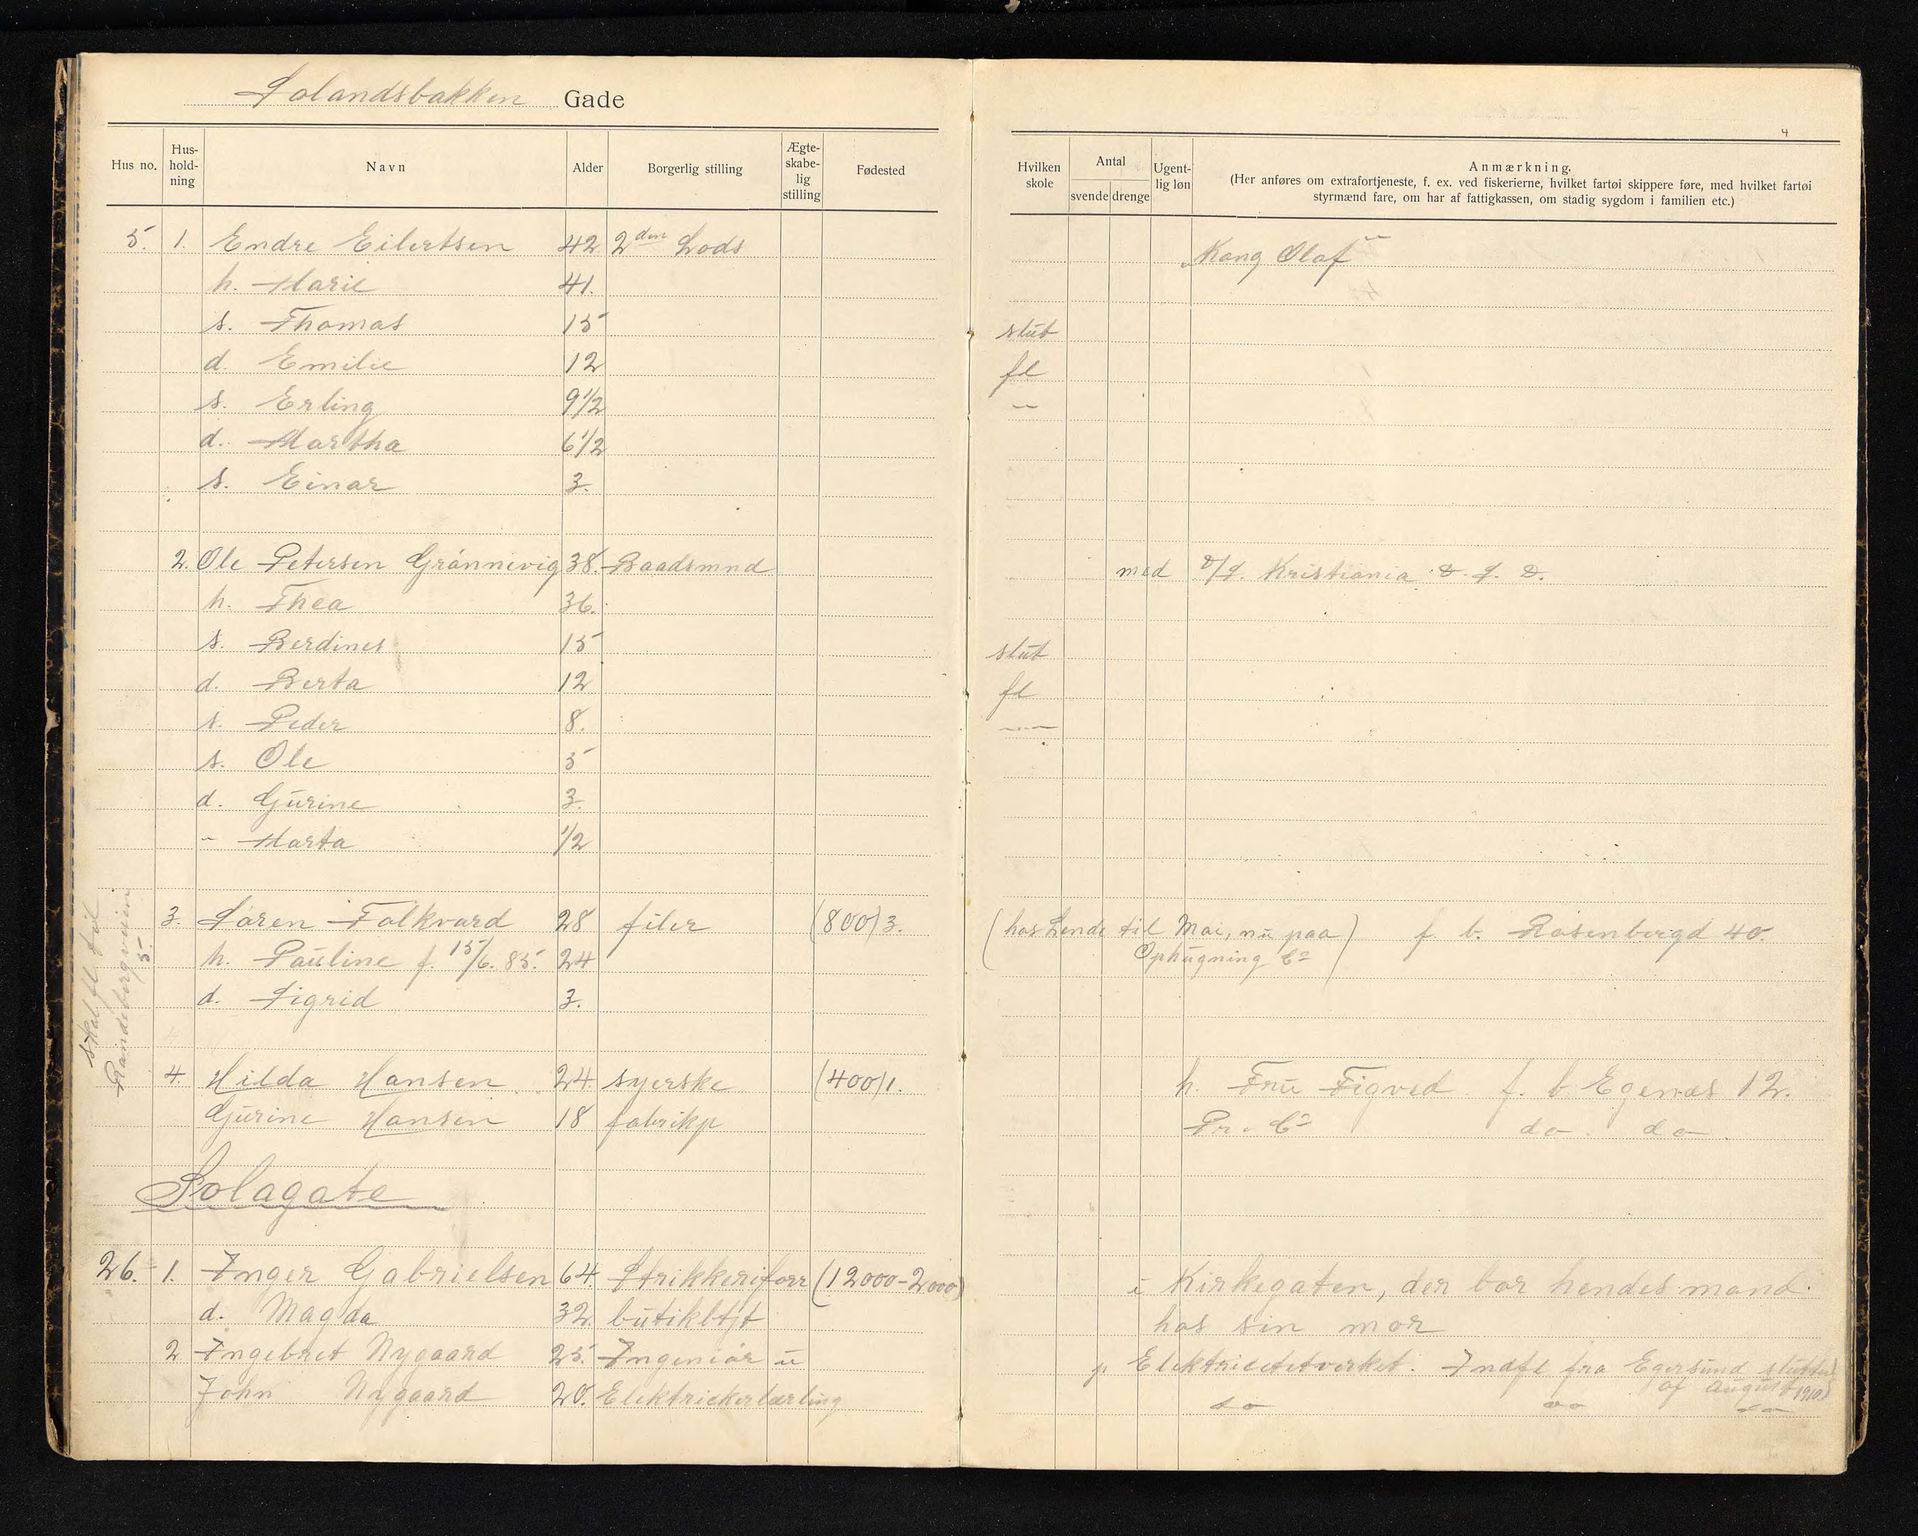 Solandsbakken Gade
4
Hus no. Hus-hold-ning Navn Alder Borgerlig stilling Ægte-skabe-lig stilling Fødested Hvilken skole Antal svende drenge Ugent-lig løn Anmærkning.
(Her anføres om extrafortjeneste, f. ex. ved fiskerierne, hvilket fartøi skippere føre, med hvilket fartøi
styrmænd fare, om har af fattigkassen, om stadig sygdom i familien etc.)
5. 1. Endre Eilertsen 42 2den Lods "Kong Olaf"
h. Marie 41.
s. Thomas 15 slut
d. Emilie 12 fl
s. Erling 9 1/2 —
d. Martha 6 1/2
s. Einar 3.
2. Ole Petersen Grönnivig 38. Baadsmnd med D/f. Kristiania D. f. D.
h. Thea 36.
s. Berdines 15 slut
d. Berta 12 fl
s. Peder 8. —
s. Ole 5
d. Gurine 3.
" Marta 1/2
3. Sören Falkvard 28 filer (800) 3. (hos Lende til Mai, nu paa f b. Rosenbergd 40.
h. Pauline f. 15/6. 85. 24 Ophugning Co)
d. Sigrid 3.
skal fl til
Randebergveien
5.
4. Hilda Hansen 24. syerske (400) 1. h. Fru Figved f. b. Egenæs 12.
Gurine Hansen 18 fabrikp Pr. Co do. do.
Solagate
26. 1. Inger Gabrielsen 64. Strikkeriforr (12000-2000) i Kirkegaten, der bor hendes mand.
d. Magda 32. butikbtjt hos sin mor
2 Ingebret Nygaard 25. Ingeniør u p Elektricitetverket. Indfl fra Egersund slutten
af August 1910
John Nygaard 20. Elektrickerlærling do do do